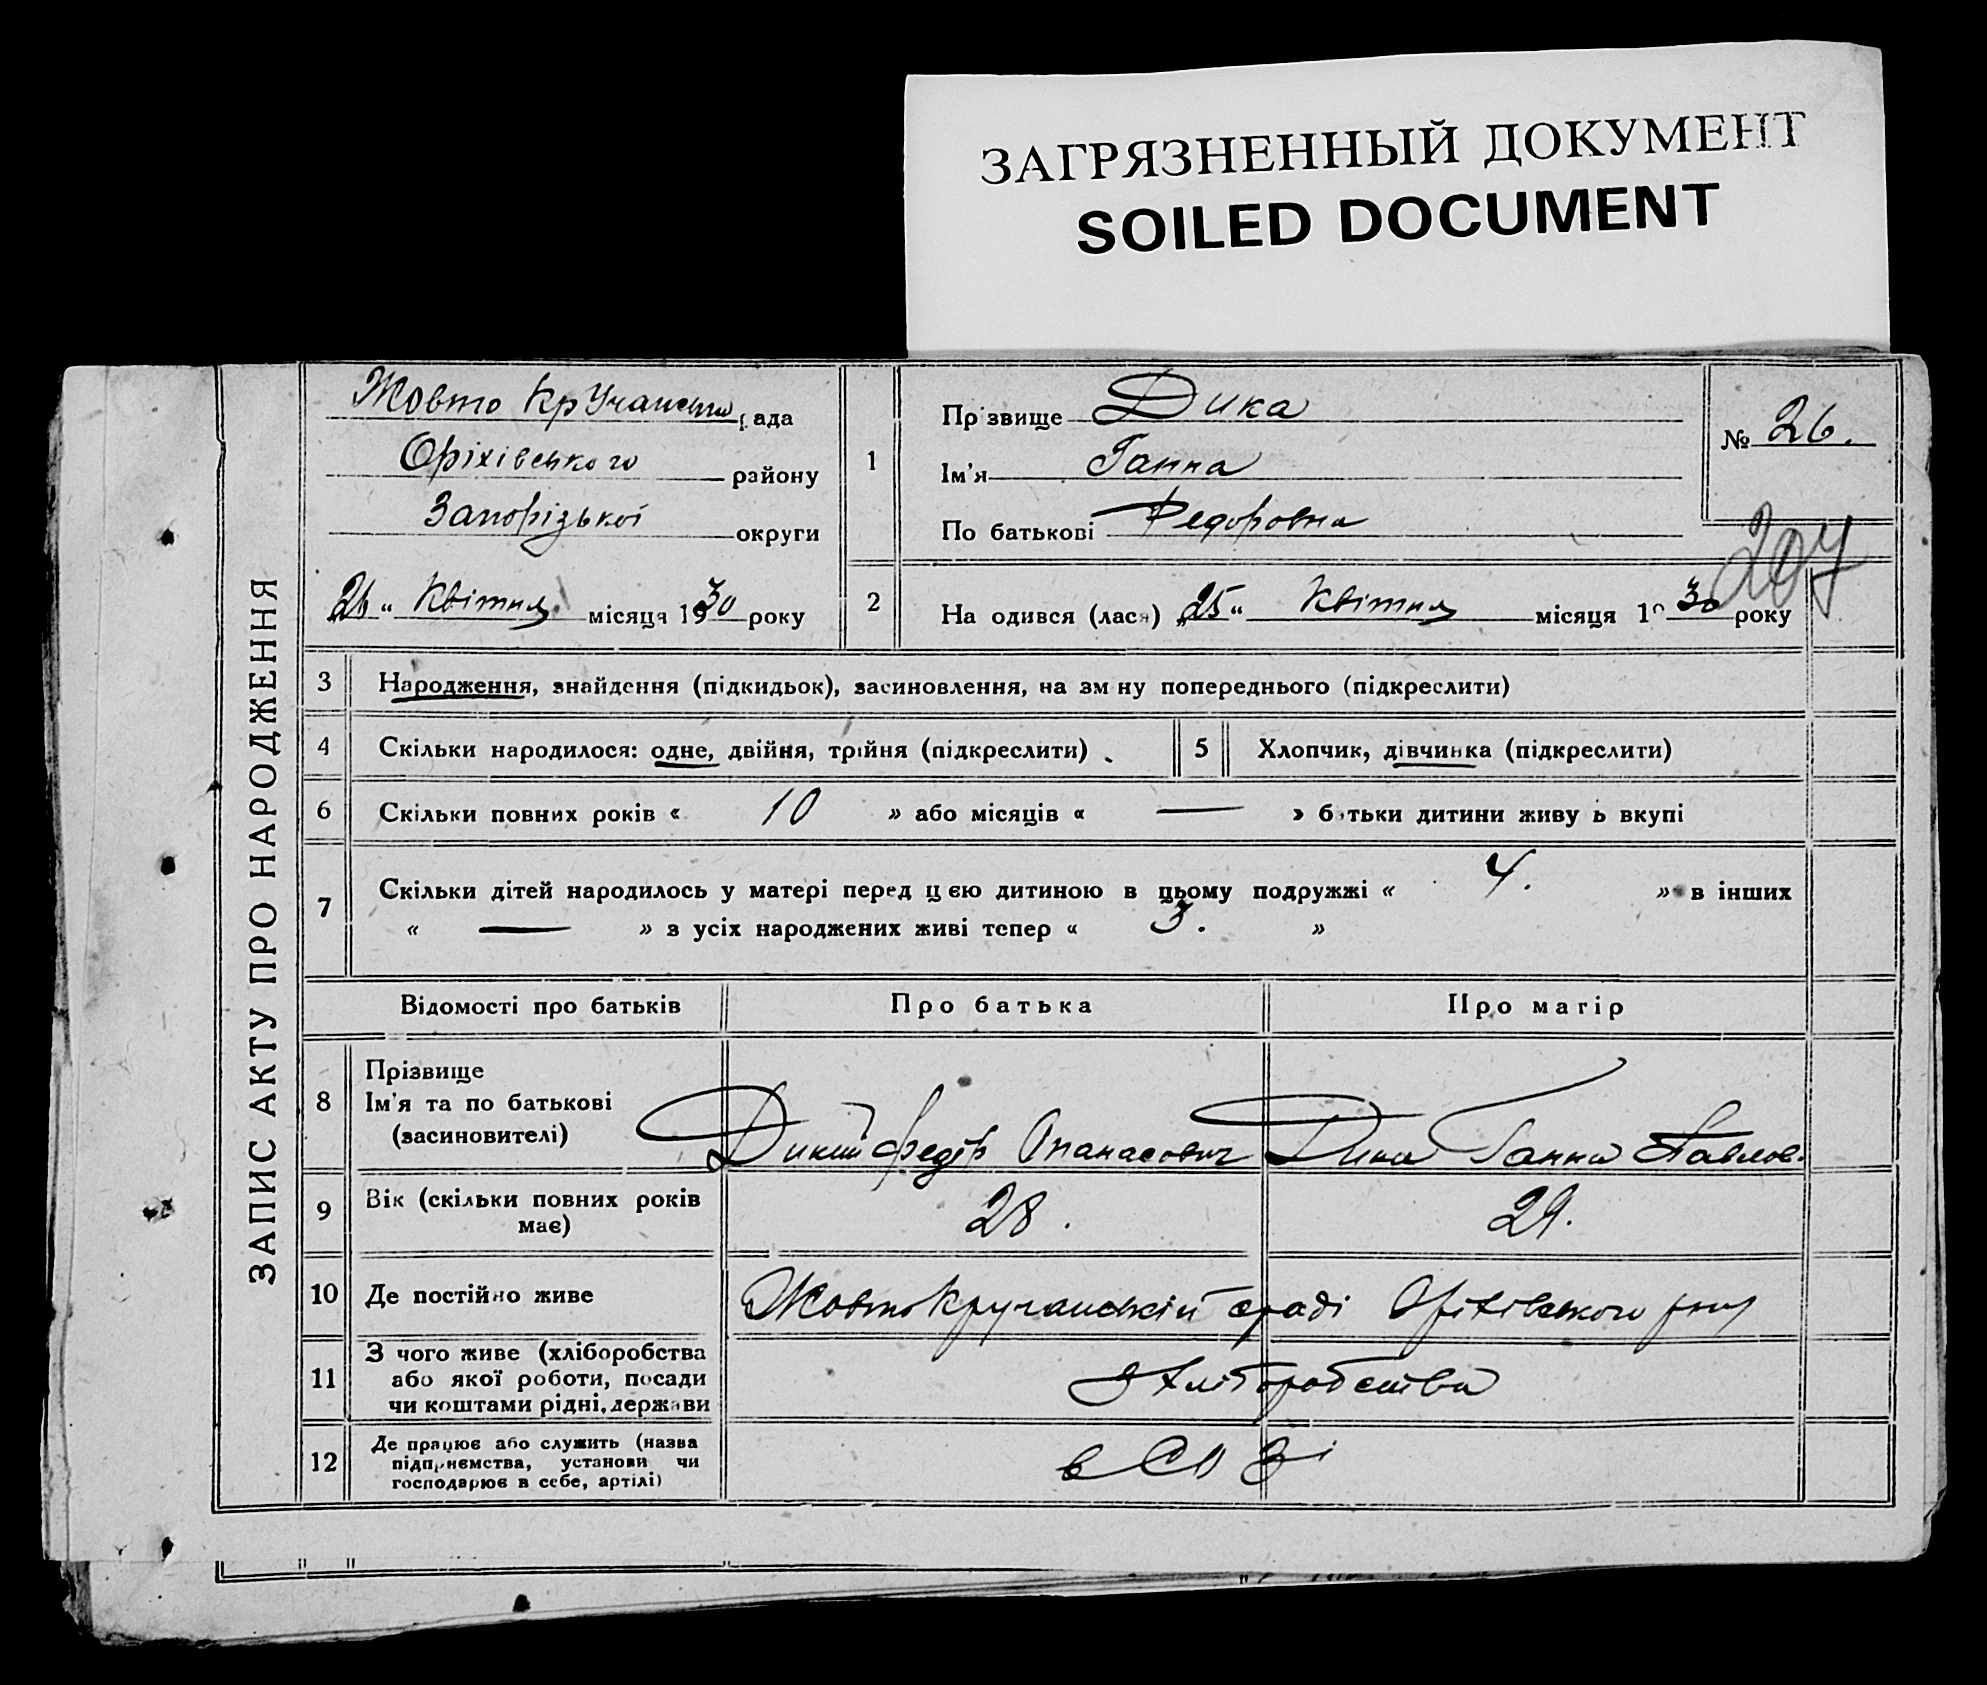 ЗАГРЯЗНЕННЫЙ ДОКУМЕНТ
SOILED DOCUMENT
ЗАПИС АКТУ ПРО НАРОДЖЕННЯ
Жовто Кручанська рада
Оріхівського району
Запорізької округи
26 „ Квітня місяця 1930 року
1
Прізвище Дика
Ім'я Ганна
По батькові Федоровна
№ 26.
204
2
На одився (лася) „25“ Квітня місяця 19 30 року
3 Народження, знайдення (підкидьок), засиновлення, на зм ну попереднього (підкреслити)
4 Скільки народилося: одне, двійня, трійня (підкреслити)
5 Хлопчик, дівчинка (підкреслити)
6 Скільки повних років « 10 » або місяців « — » б тьки дитини живу ь вкупі
7 Скільки дітей народилось у матері перед цією дитиною в цьому подружжі « 4. » в інших
« — » з усіх народжених живі тепер « 3. »
Відомості про батьків Про батька Про матір
8 Прізвище
Ім'я та по батькові
(засиновителі)
Дикий Федір Опанасович Дика Ганна Павлов.
9 Вік (скільки повних років
має)
28. 29.
10 Де постійно живе Жовтокручанській сраді Оріхівського рну
11 З чого живе (хліборобства
або якої роботи, посади
чи коштами рідні, держави
з Хліборобства
12 Де працює або служить (назва
підприємства, установи чи
господарює в себе, артілі)
в СОЗі